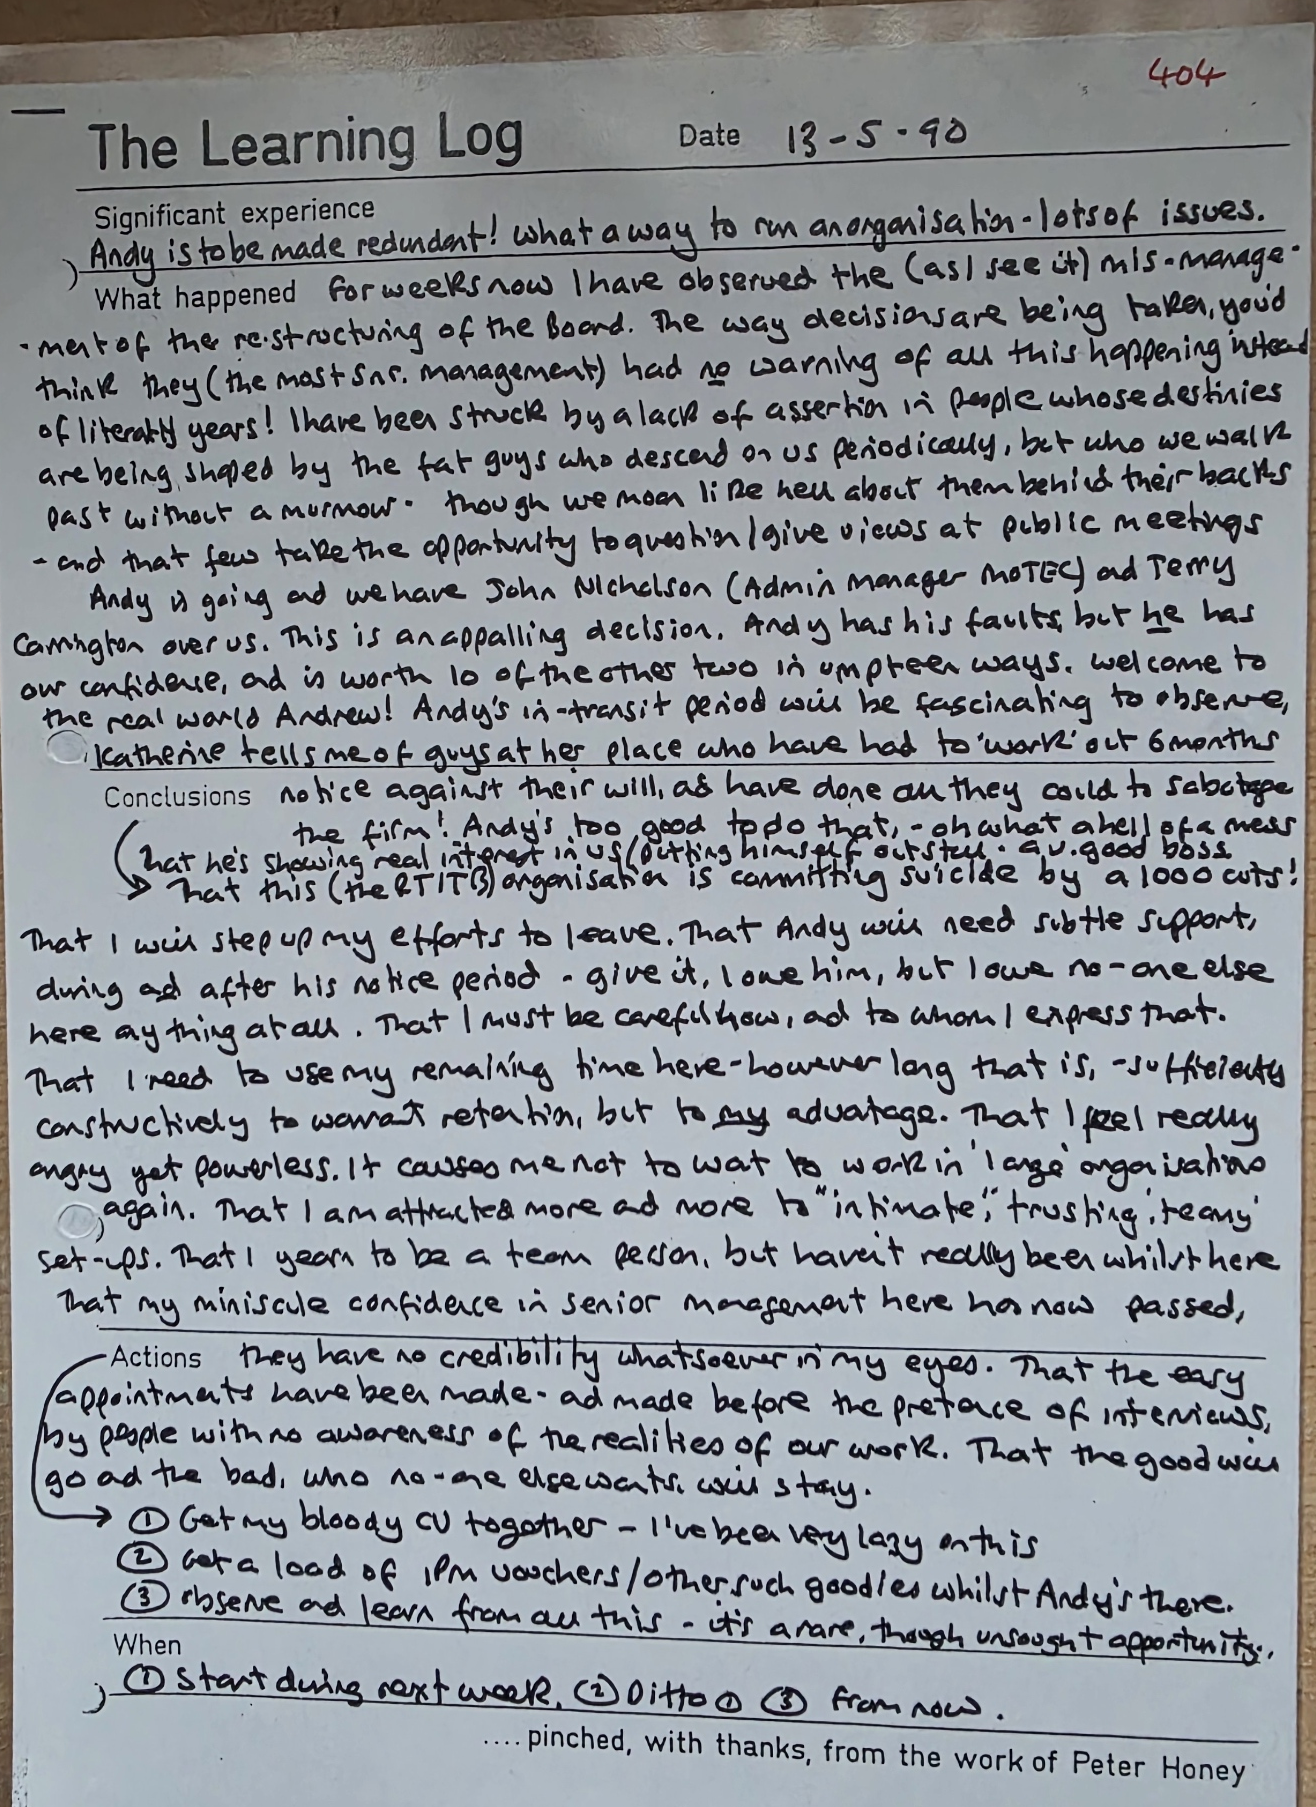 404
The Learning Log Date 13-5-90
Significant experience
Andy is to be made redundant! What a way to run an organisation - lots of issues.
What happened For weeks now I have observed the (as I see it) mis-manage-
-ment of the re-structuring of the Board. The way decisions are being taken, you'd
think they (the most snr. management) had no warning of all this happening instead
of literally years! I have been struck by a lack of assertion in people whose destinies
are being shaped by the fat guys who descend on us periodically, but who we walk
past without a murmour. though we moan like hell about them behind their backs
- and that few take the opportunity to question/give views at public meetings
Andy is going and we have John Nicholson (Admin Manager MOTEC) and Terry
Carrington over us. This is an appalling decision. Andy has his faults, but he has
our confidence, and is worth 10 of the other two in umpteen ways. Welcome to
the real world Andrew! Andy's in-transit period will be fascinating to observe,
Katherine tells me of guys at her place who have had to 'work' out 6 months
Conclusions notice against their will, and have done all they could to sabotage
the firm! Andy's too good to do that, - oh what a hell of a mess
That he's showing real interest in us/putting himself out still. a v. good boss
That this (the RTITB) organisation is committing suicide by a 1000 cuts!
That I will step up my efforts to leave. That Andy will need subtle support,
during and after his notice period - give it, I owe him, but I owe no-one else
here anything at all. That I must be careful how, and to whom I express that.
That I need to use my remaining time here - however long that is, - sufficiently
constructively to warrant retention, but to my advantage. That I feel really
angry yet powerless. It causes me not to want to work in 'large' organisations
again. That I am attracted more and more to "intimate", 'trusting', 'teamy'
set-ups. That I yearn to be a team person, but haven't really been whilst here
That my miniscule confidence in senior management here has now passed,
Actions they have no credibility whatsoever in my eyes. That the easy
appointments have been made - and made before the pretence of interviews,
by people with no awareness of the realities of our work. That the good will
go and the bad, who no-one else wants, will stay.
① Get my bloody CV together - I've been very lazy on this
② Get a load of IPM vouchers/other such goodies whilst Andy's there.
③ Observe and learn from all this - it's a rare, though unsought opportunity.
When
① Start during next week. ② Ditto ① ③ From now.
.... pinched, with thanks, from the work of Peter Honey